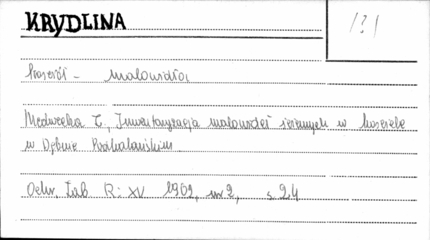 KRYDLINA
131
Kościół - malowidła
Medwecka C, Inwentaryzacja malowideł ściennych w kościele
w Dębnie Podhalańskim
Ochr Zab R: XV 1962, nr 2, s. 24